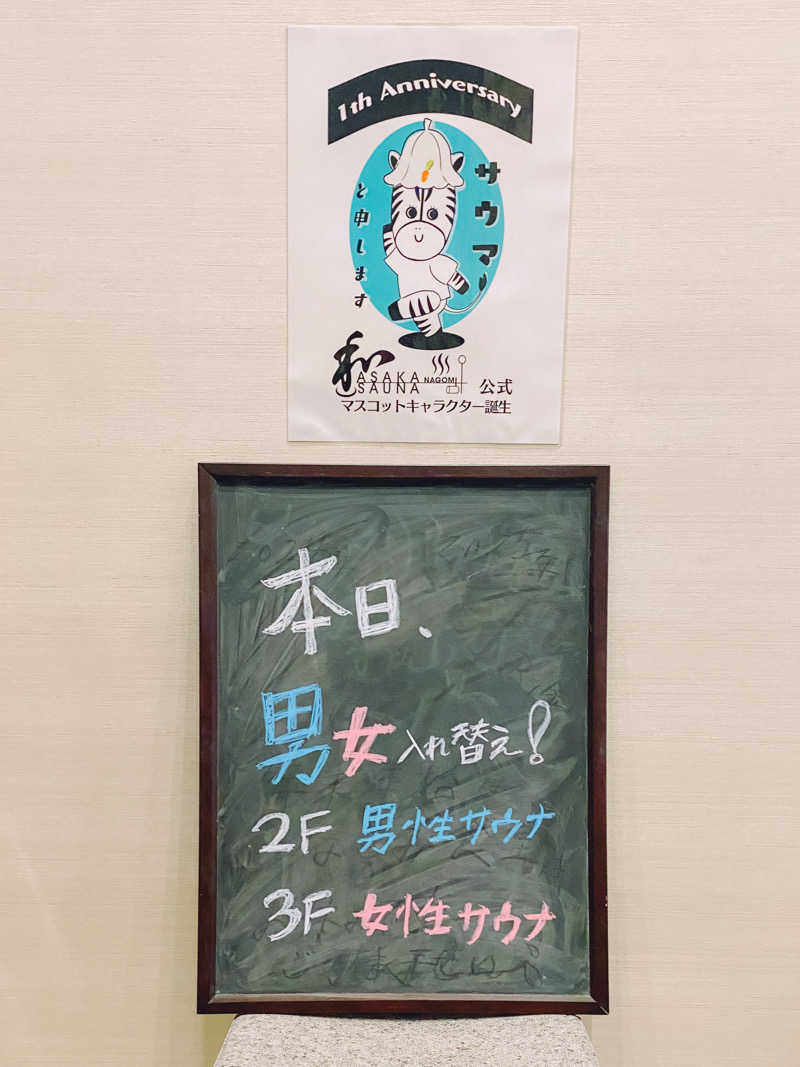 1th Anniversary
サウマー
と申します
和
ASAKA
SAUNA
NAGOMI
公式
マスコットキャラクター誕生
本日、
男女入れ替え!
2F 男性サウナ
3F 女性サウナ